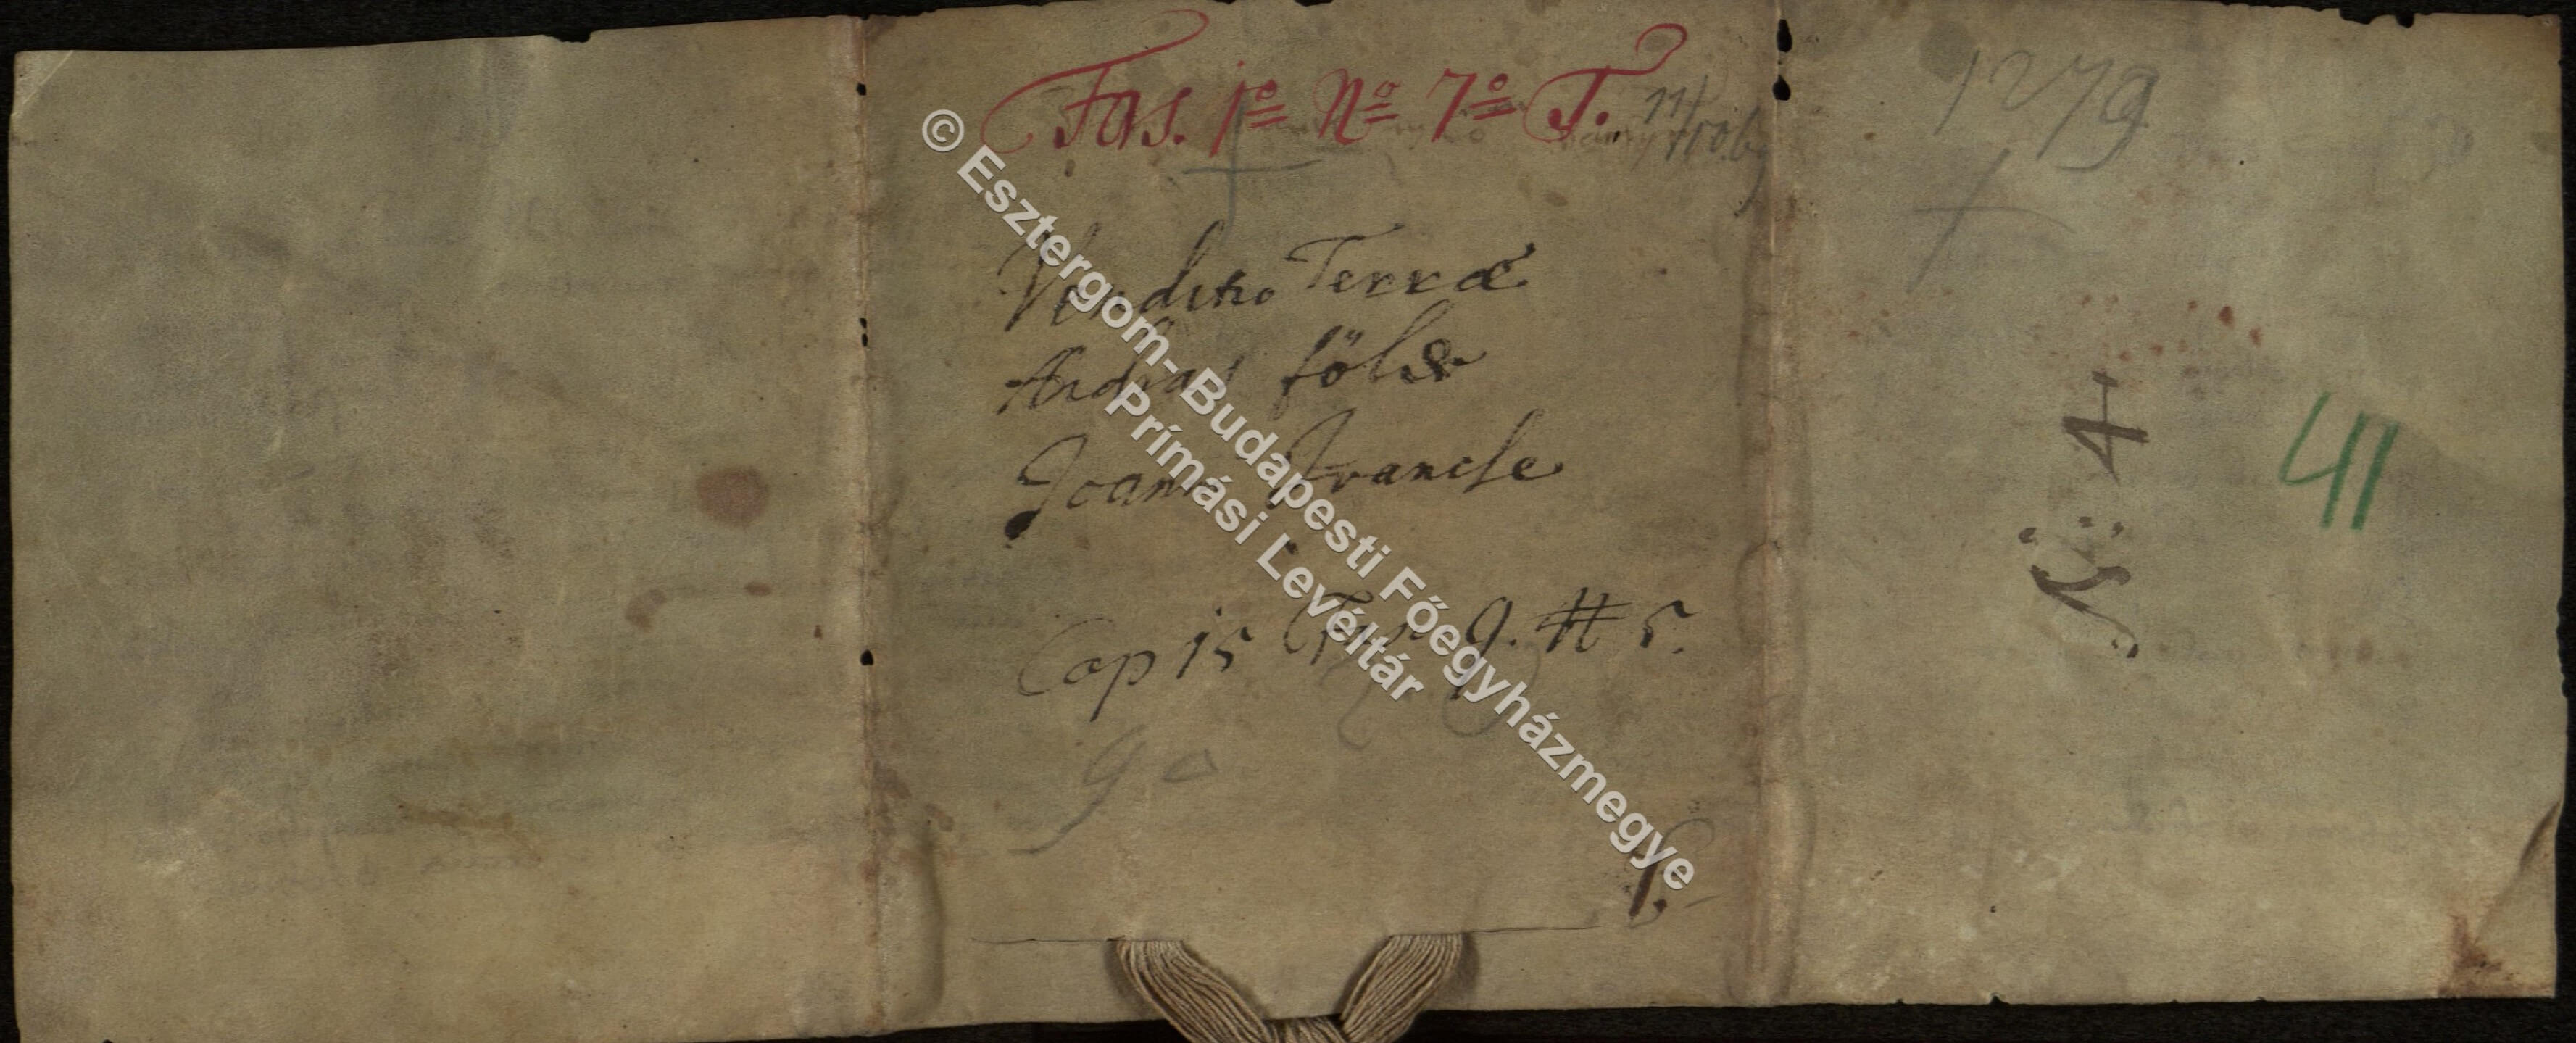 Fas. 1º Nº 7º T.
11
1279
Venditio Terræ
András föld
Joanni Ivanche
Cap 15 9. # 5.
N: 4
41
© Esztergom-Budapesti Főegyházmegye
Prímási Levéltár